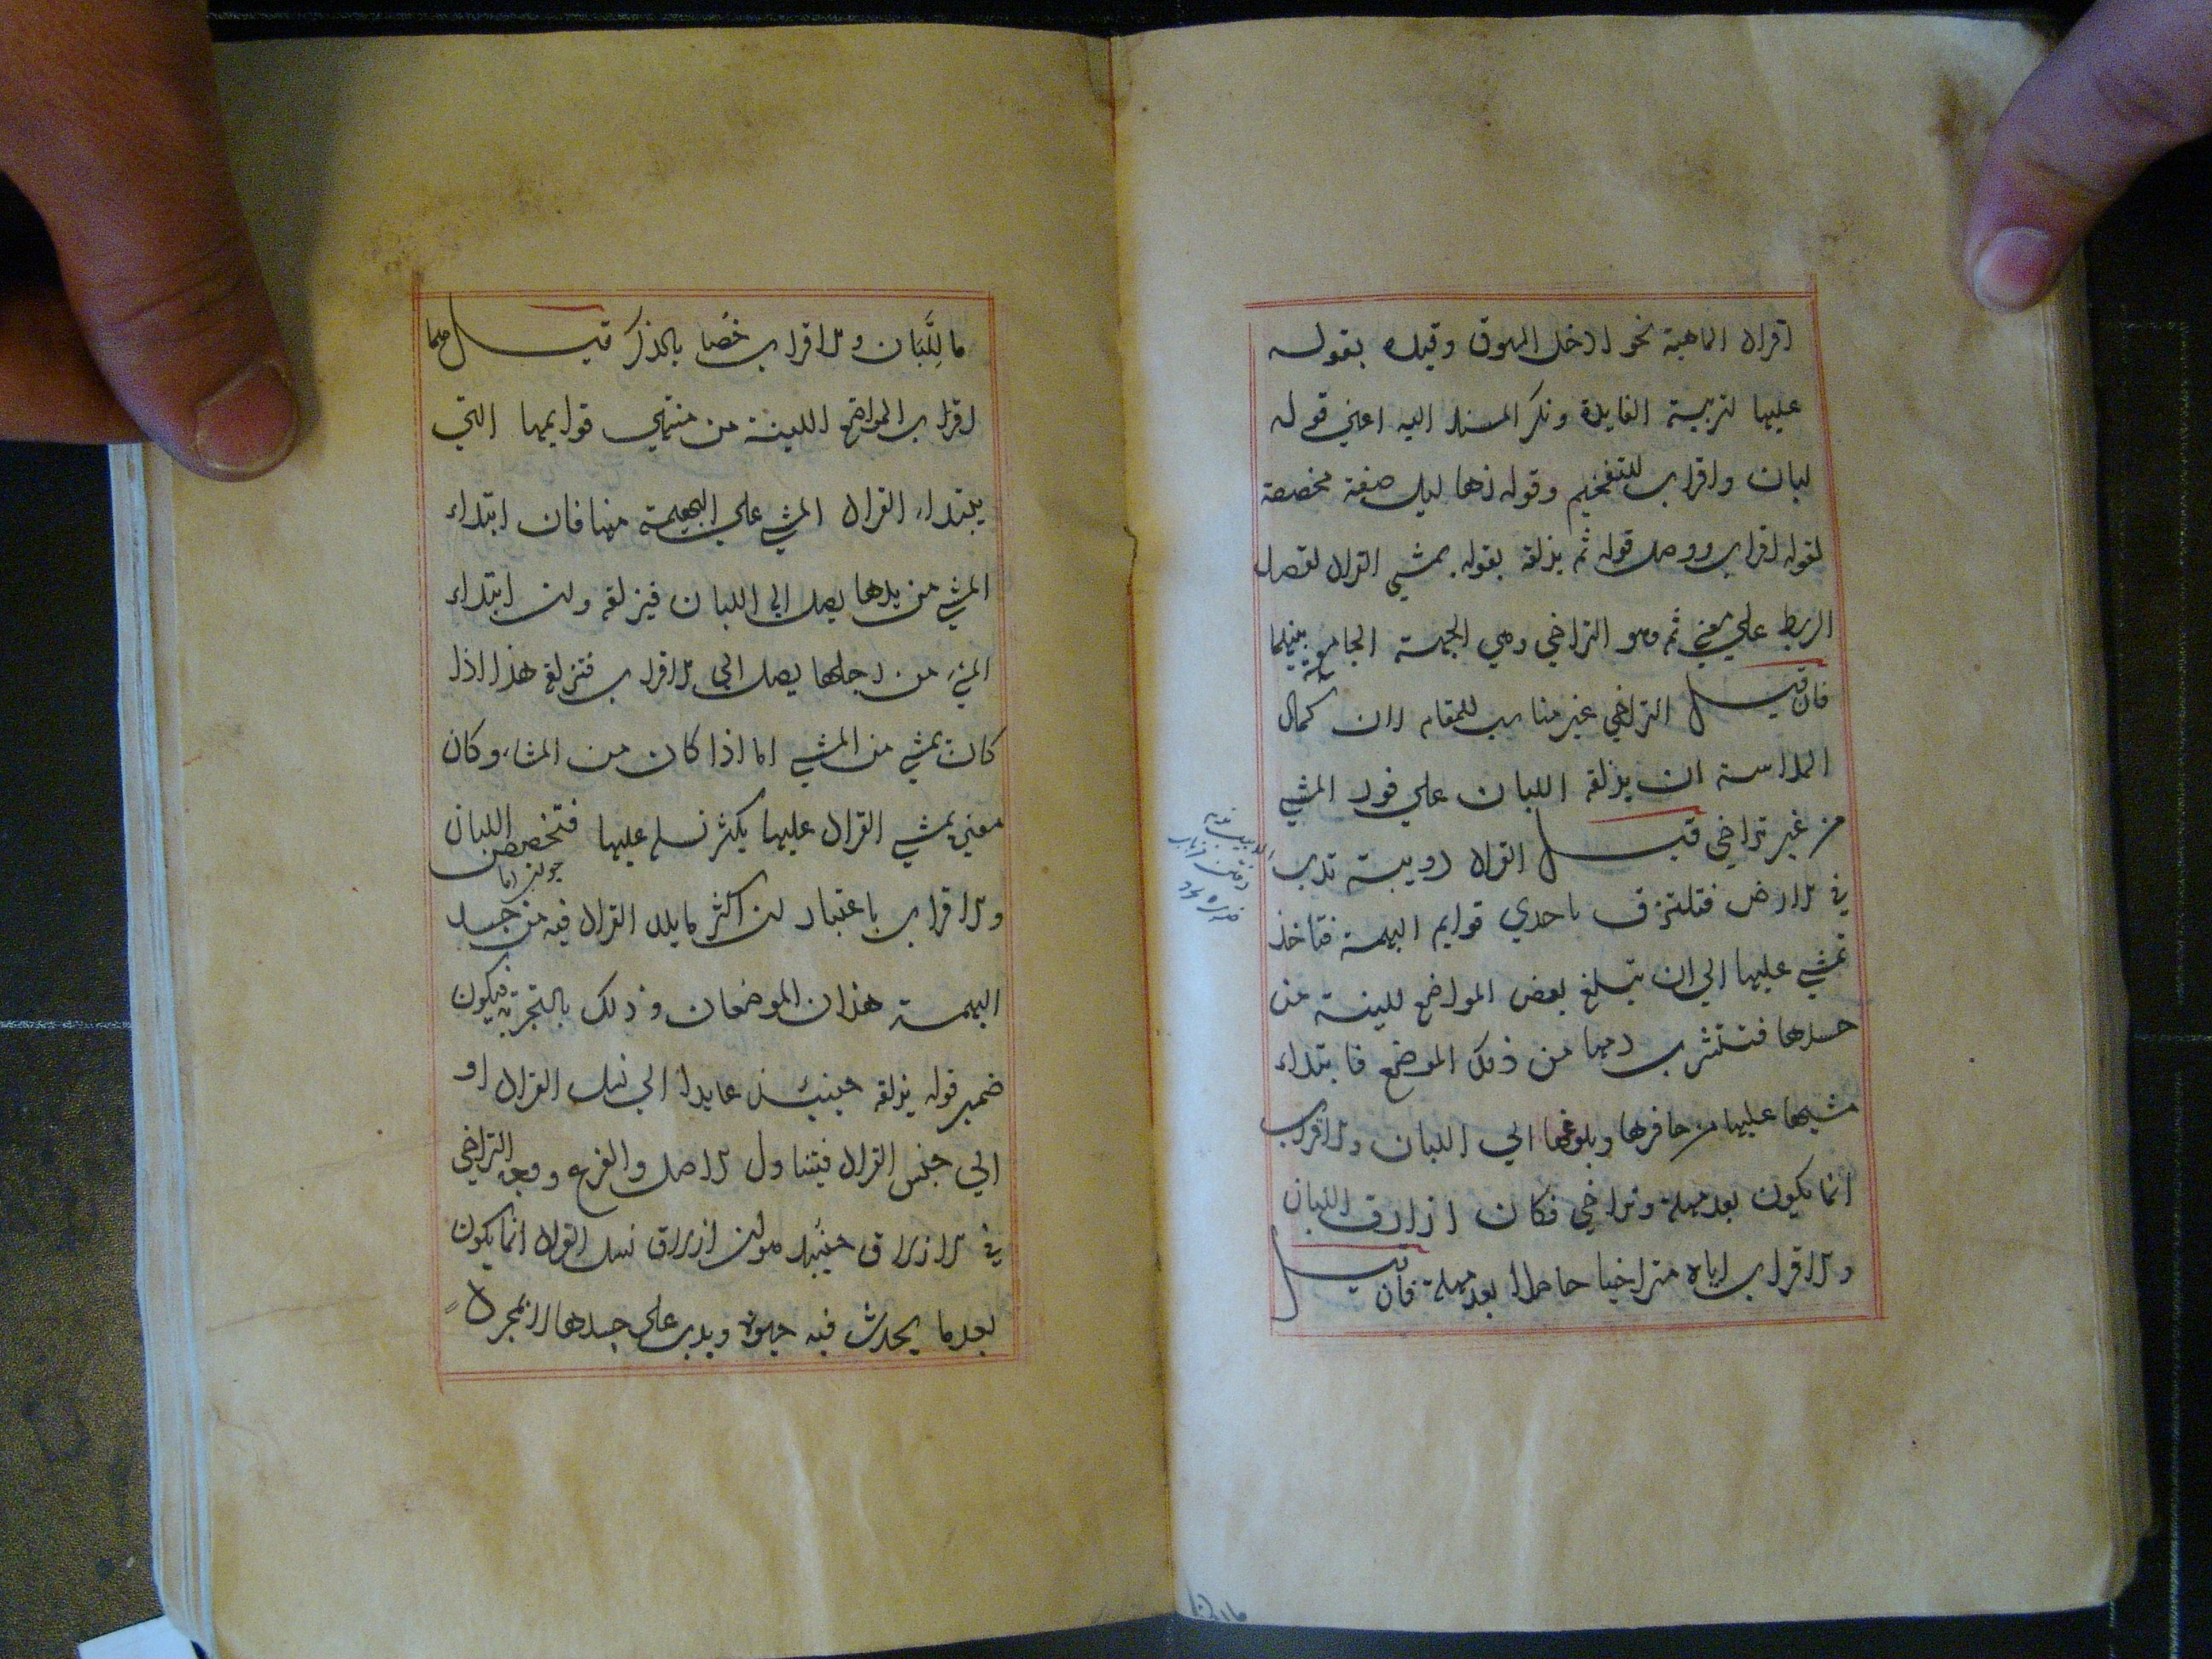 افراد الماهية نحو ادخل السوق وقيده بقوله
عليها لتربية الفايدة ونكر المسند اليه اعني قوله
لبان واقراب للتفخيم وقوله زهاليل صفة مخصصة
لقوله اقراب ووصل قوله ثم يزلقه بقوله يمشي القراد لقصد
الربط علي معني ثم وهو التراخي وهي الجهة الجامعة بينهما
فان قيل التراخي غير مناسب للمقام لان كمال
الملاسة ان يزلقه اللبان علي فور المشي
من غير تراخي قيل القراد دويبة تدب
في الارض فتلتزق باحدي قوايم البهيمة فتاخذ
تمشي عليها الي ان تبلغ بعض المواضع للينة من
جسدها فتشرب دمها من ذلك الموضع فابتداء
مشيها عليها من حافرها وبلوغها الي اللبان والاقراب
انما يكون بعد مهلة وتراخي فكان ازلاق اللبان
والاقراب اياه متراخيا حاصلا بعد مهلة فان قيل
ما للبان والاقراب خصا بالذكر قيل هما
اقرب المواضع اللينة من منتهي قوايمها التي
يبتداء القراد المشي علي البهيمة منها فان ابتداء
المشي من يدها يصل الي اللبان فيزلقه وان ابتداء
المشي من رجلها يصل الي الاقراب فتزلقه هذا اذا
كان يمشي من المشي اما اذا كان من المشاء وكان
معني يمشي القراد عليها يكثر نسله عليها فتخصيص اللبان
والاقراب باعتبار ان اكثر ما يلد القراد فيه من جسد
البهيمة هذان الموضعان وذلك بالتجربة فيكون
ضمير قوله يزلقه حينئذ عايدا الي نسل القراد او
الي جنس القراد فيتناول الاصل والفرع ووجه التراخي
في الازلاق حينئذ هو ان ازلاق نسل القراد انما يكون
بعد ما يحدث فيه حيوة ويدب علي جسدها